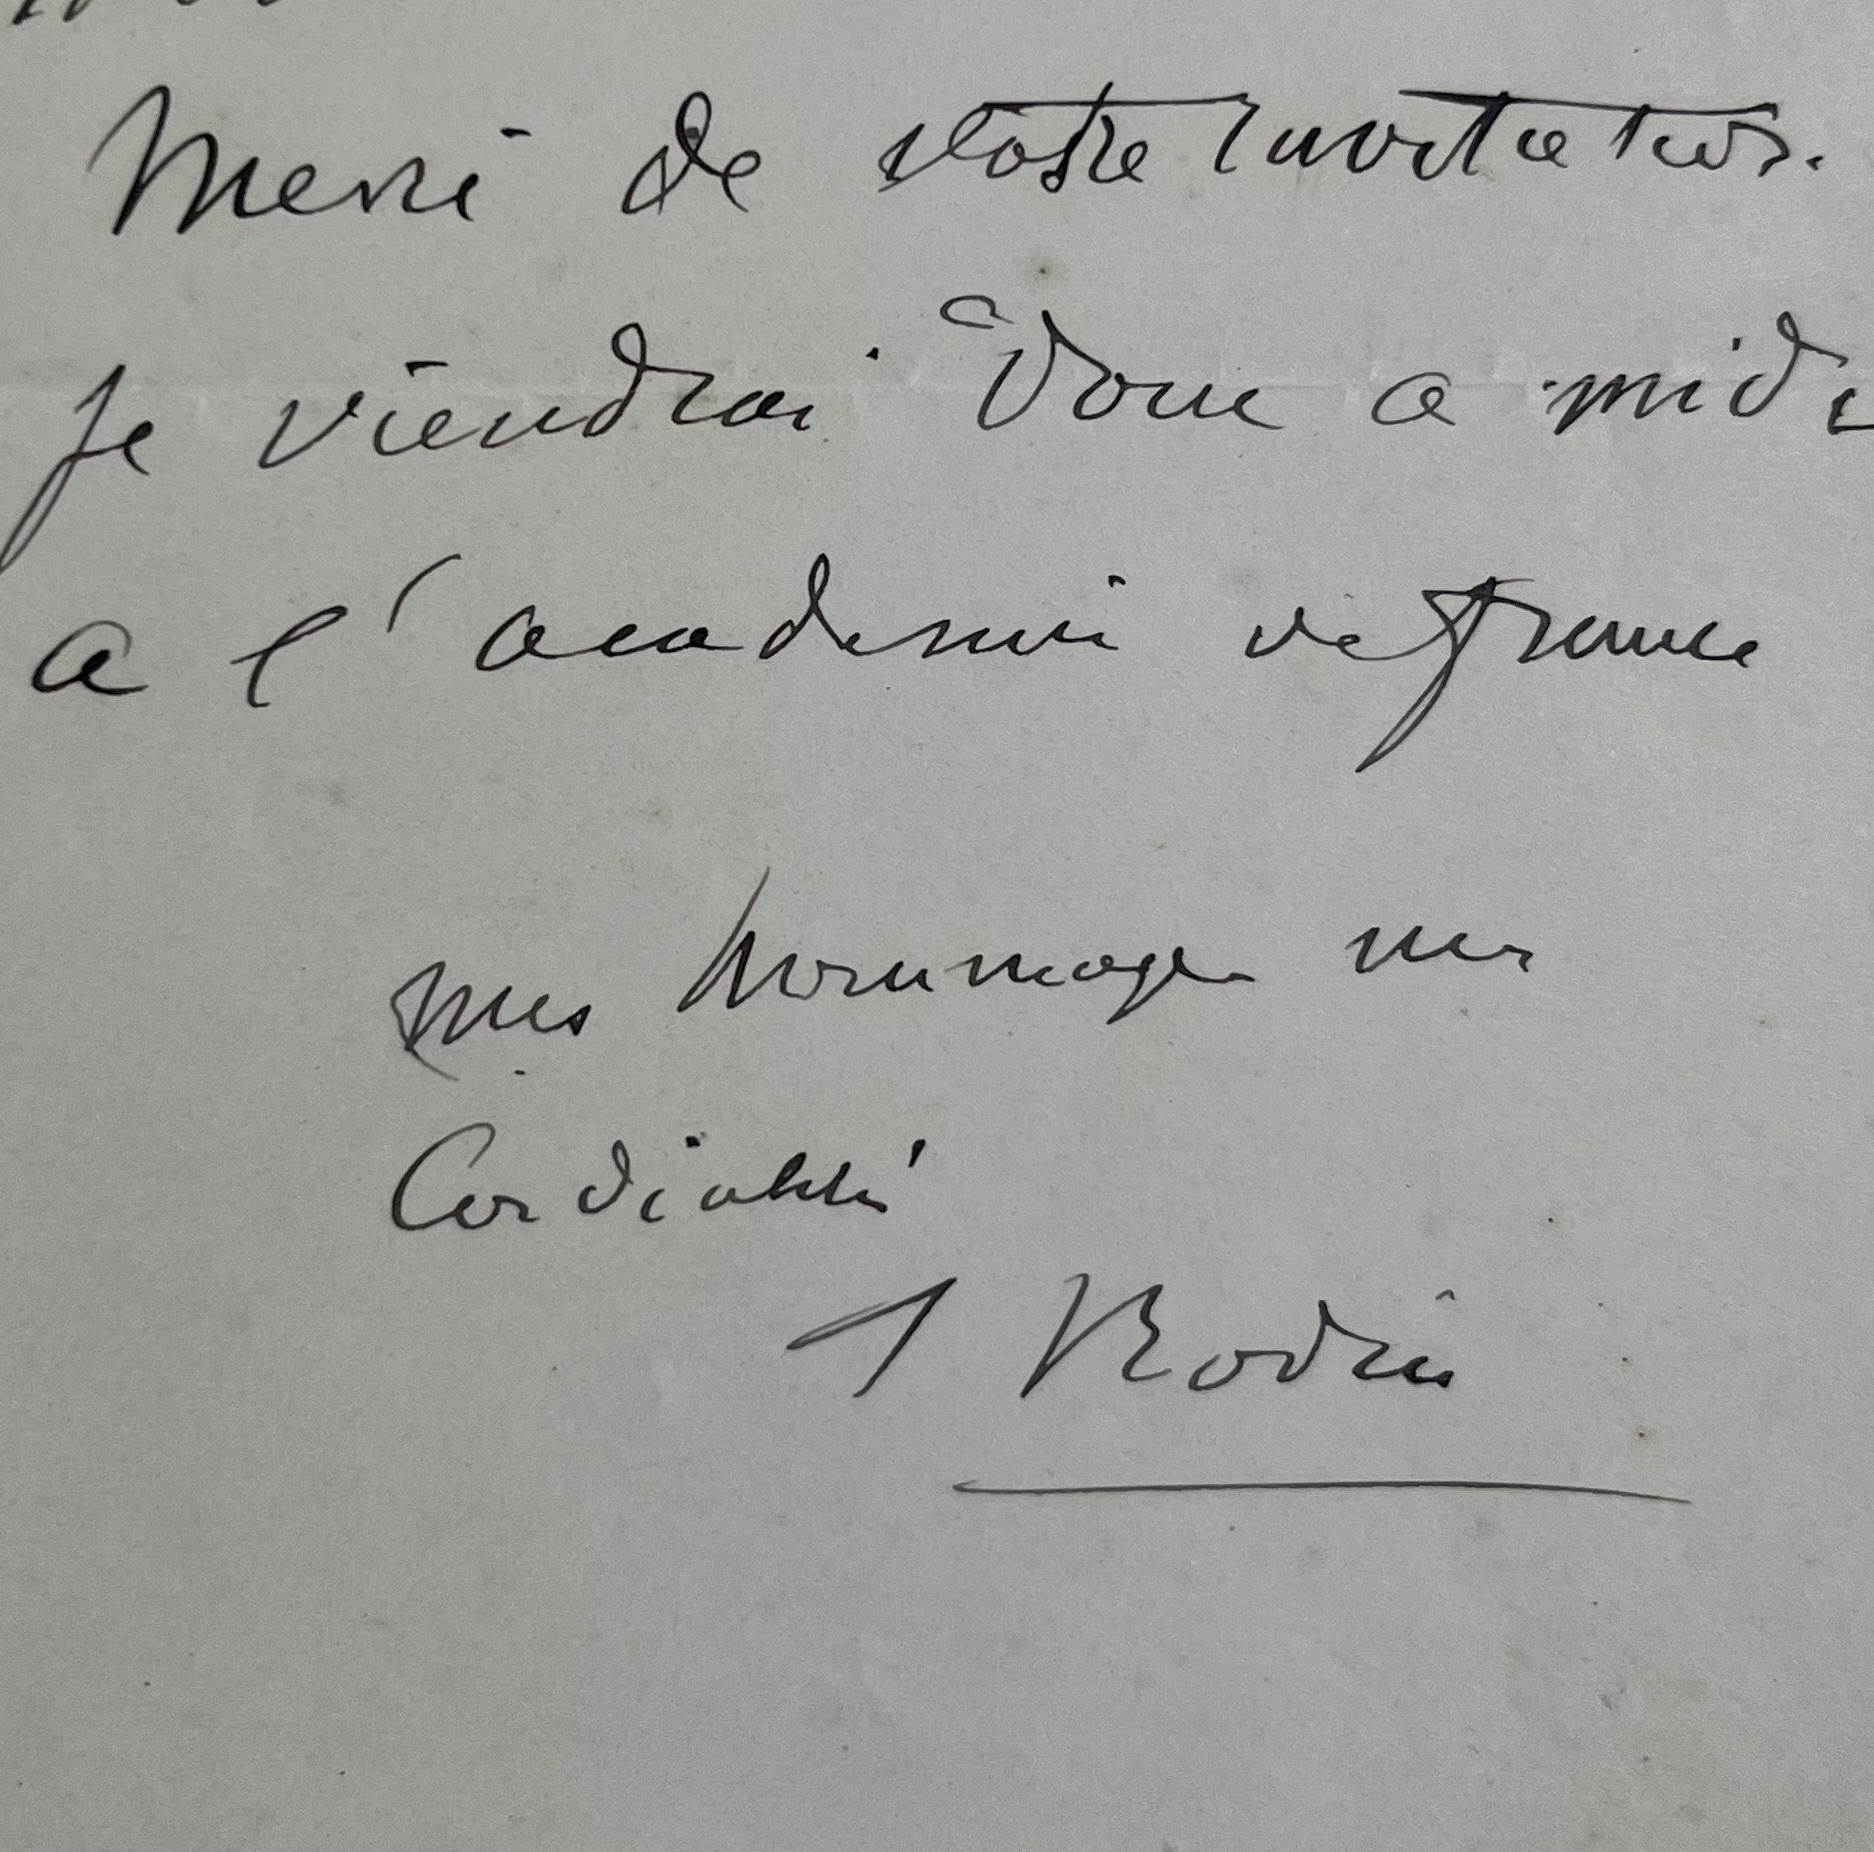 Merci de votre invitation.
Je viendrai donc a midi
a l'academie de france
mes hommages mes
Cordialité
A Rodin